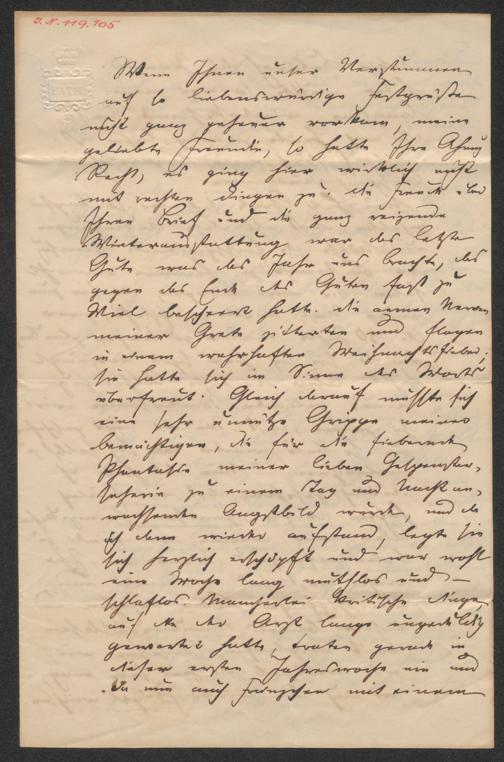 J.N. 119.105
BATH
Wenn Ihnen unser Verstummen
auf so liebenswürdige Festgrüße
nicht ganz geheuer vorkam, meine
geliebte Freundin, so hatte Ihre Ahnung
Recht, es ging hier wirklich nicht
mit rechten Dingen zu. Die Freude über
Ihren Brief und die ganz reizende
Winterausstattung war das letzte
Gute was das Jahr uns brachte, das
gegen das Ende des Guten fast zu
Viel bescheert hatte. Die armen Nerven
meiner Grete zitterten und flogen
in einem wahrhaften Weihnachtsfieber;
sie hatte sich im Sinne des Worts
überfreut. Gleich darauf mußte sich
eine sehr unnütze Grippe meiner
bemächtigen, die für die fiebernde
Phantasie meiner lieben Gespenster-
seherin zu einem Tag und Nacht an-
wachsenden Angstbild wurde, und da
ich dann wieder aufstand, legte sie
sich herzlich erschöpft und war wohl
eine Woche lang muthlos und –
schlaflos. Mancherlei kritische Dinge,
auf die der Arzt lange ungeduldig
gewartet hatte, traten gerade in
dieser ersten Jahreswoche ein und
da nun auch Fränzchen mit einem